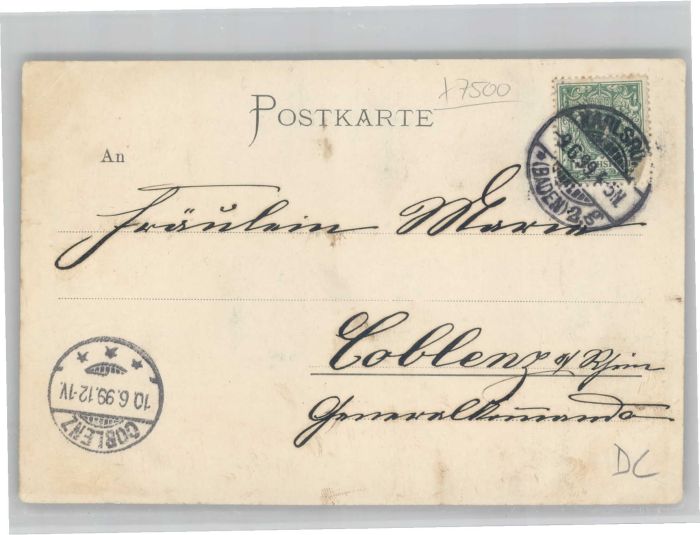 x 7500
POSTKARTE
An
KARLSRU
9.6.99. 4-5N
*(BADEN)2.s*
Fräulein Marie
Coblenz a/ Rhein
Generalkommando
10.6.99.12-1V.
COBLENZ
DC